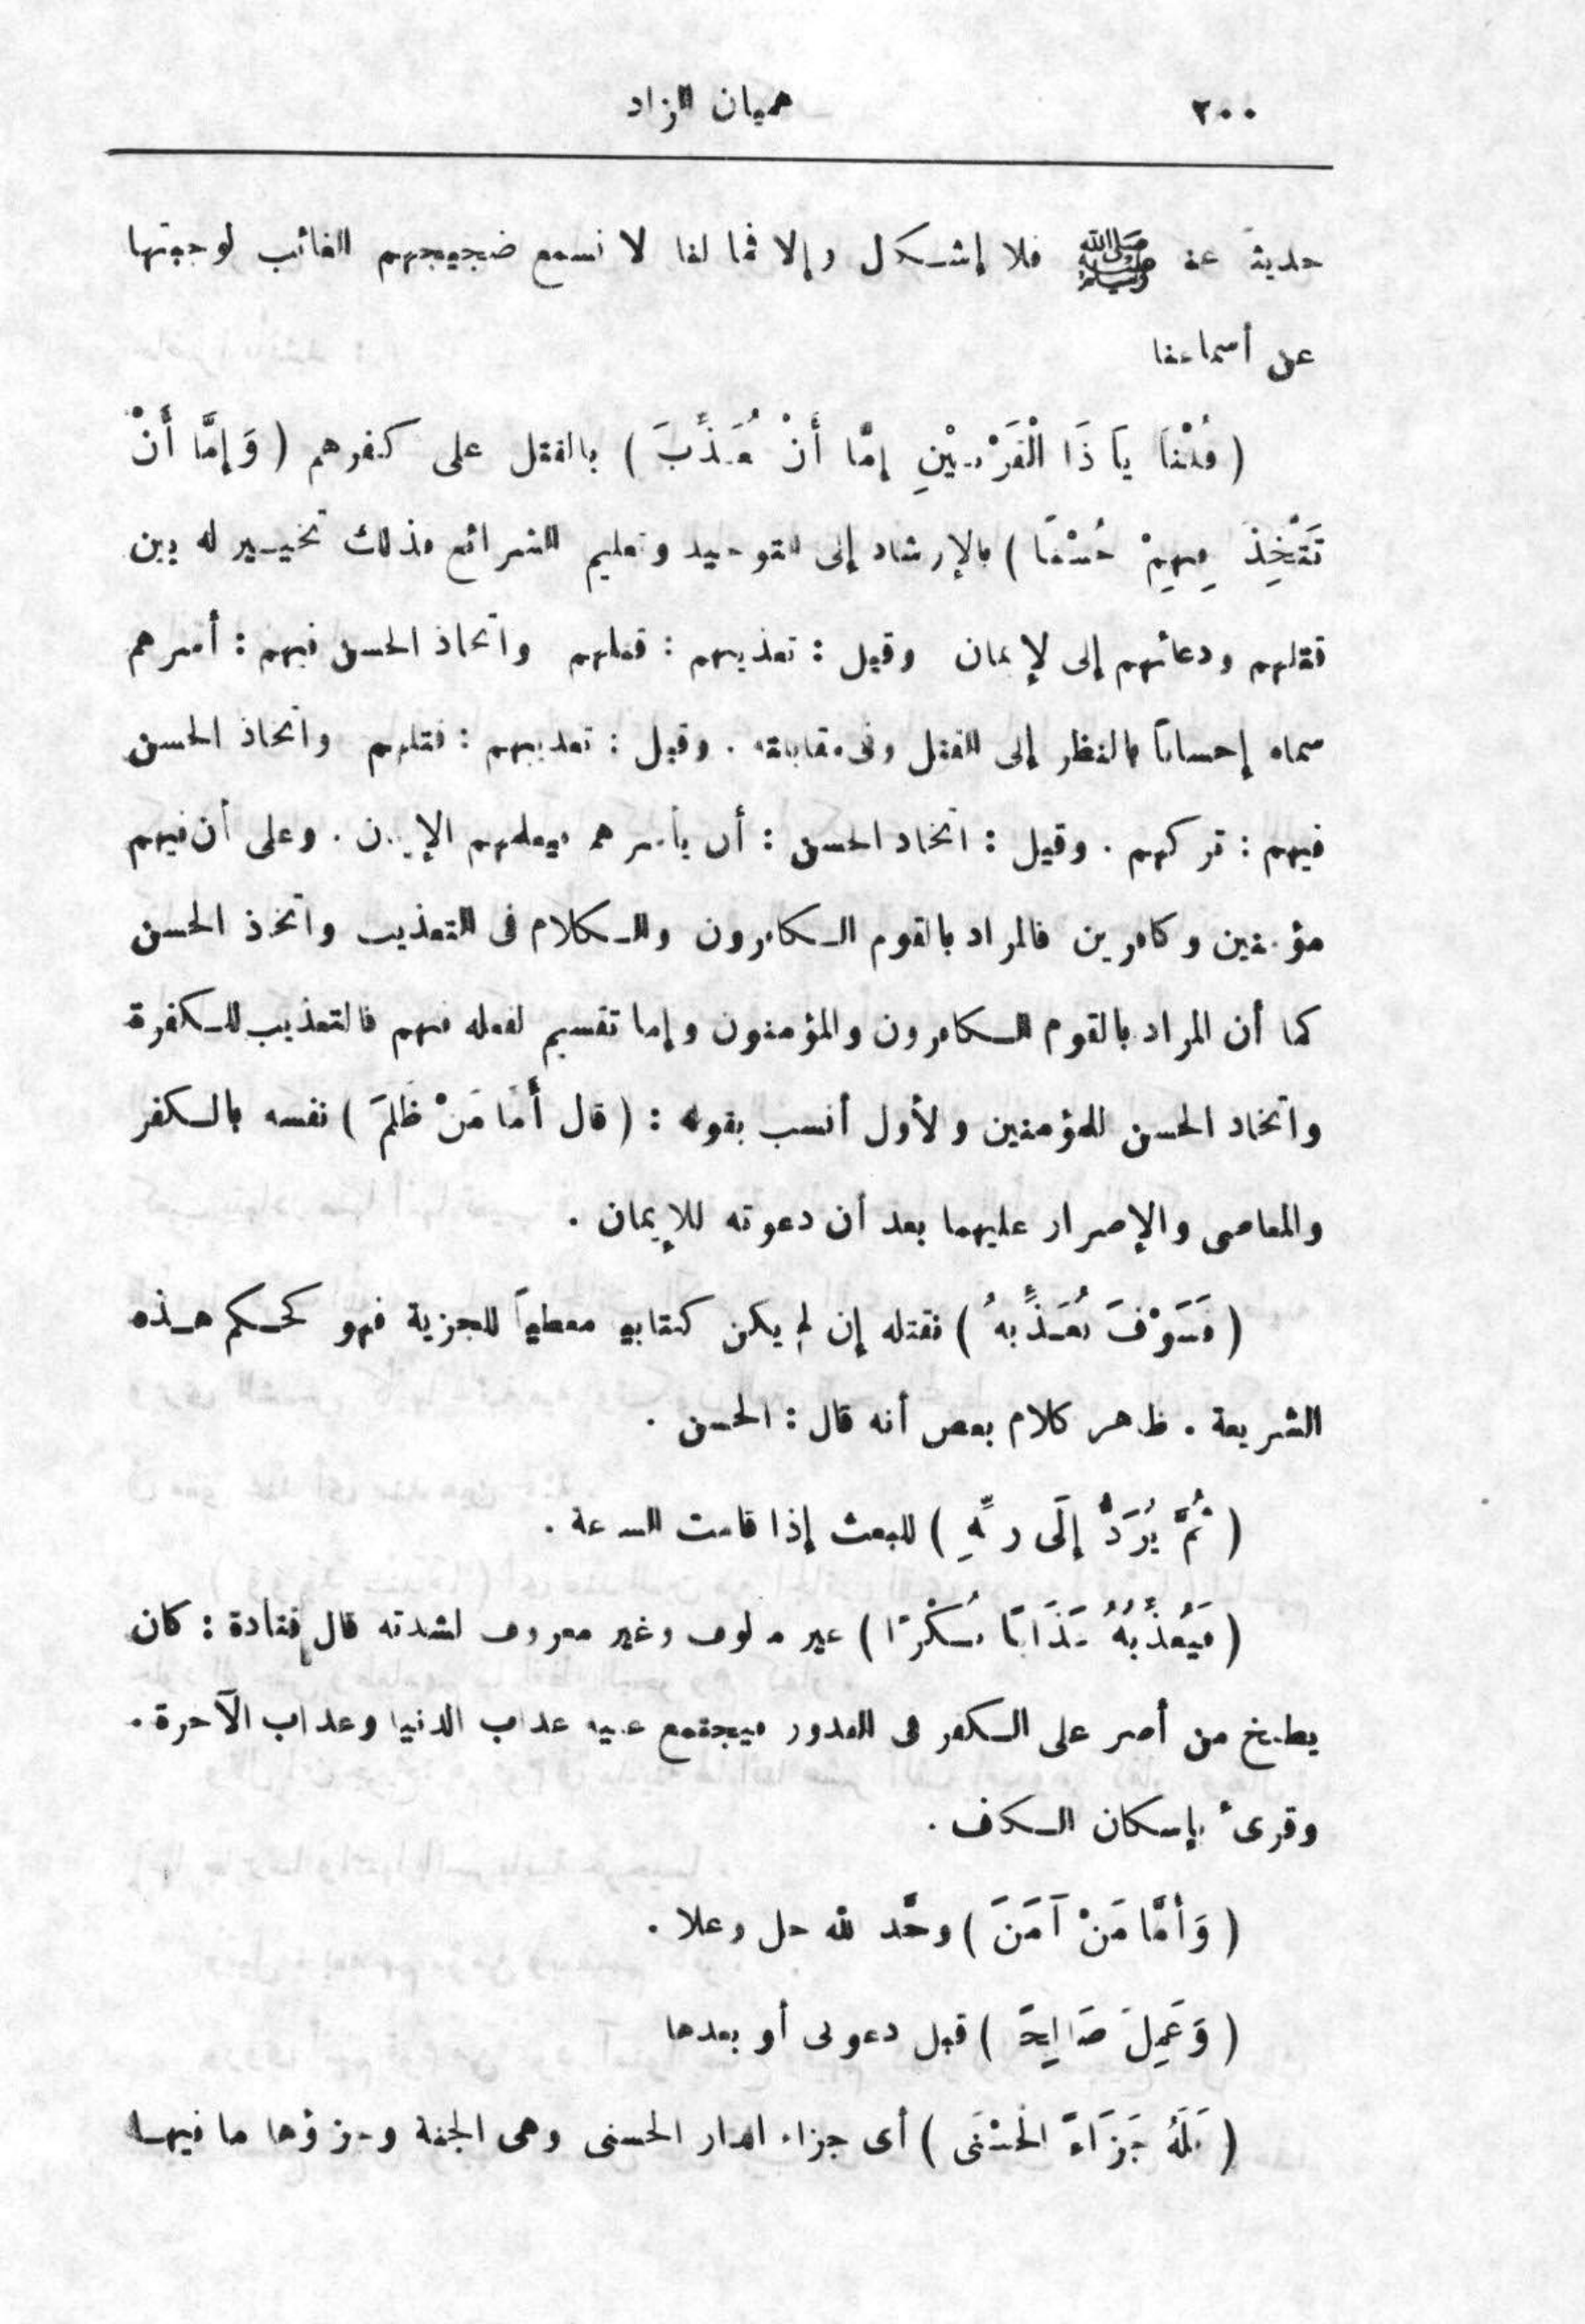 ٢٠٠
هميان الزاد
حديثا عنه ﷺ فلا إشكال وإلا فما لنا لا نسمع ضجيجهم الغائب لوجبتها
عن أسماعنا
( قُلْنَا يَا ذَا الْقَرْنَيْنِ إِمَّا أَنْ تُعَذِّبَ ) بالقتل على كفرهم ( وَإِمَّا أَنْ
تَتَّخِذَ فِيهِمْ حُسْنًا ) بالإرشاد إلى التوحيد وتعليم الشرائع فذلك تخيير له بين
قتلهم ودعائهم إلى الإيمان وقيل : تعذيبهم : قتلهم واتخاذ الحسن فيهم : أسرهم
سماه إحسانا بالنظر إلى القتل وفى مقابلته . وقيل : تعذيبهم : قتلهم واتخاذ الحسن
فيهم : تركهم . وقيل : اتخاذ الحسن : أن يأسرهم فيعلمهم الإيمان . وعلى أن فيهم
مؤمنين وكافرين فالمراد بالقوم الكافرون والكلام فى التعذيب واتخاذ الحسن
كما أن المراد بالقوم الكافرون والمؤمنون وإما تقسيم لفعله فيهم فالتعذيب للكفرة
واتخاذ الحسن للمؤمنين والأول أنسب بقوله : ( قال أَمَّا مَنْ ظَلَمَ ) نفسه بالكفر
والمعاصى والإصرار عليهما بعد أن دعوته للإيمان .
( فَسَوْفَ نُعَذِّبُهُ ) نقتله إن لم يكن كتابيا معطياً للجزية فهو كحكم هذه
الشريعة . ظاهر كلام بعض أنه قال : الحسن .
( ثُمَّ يُرَدُّ إِلَى رَبِّهِ ) للبعث إذا قامت الساعة .
( فَيُعَذِّبُهُ عَذَابًا نُكْرًا ) غير مألوف وغير معروف لشدته قال قتادة : كان
يطبخ من أصر على الكفر فى القدور فيجتمع عليه عذاب الدنيا وعذاب الآخرة .
وقرىء بإسكان الكاف .
( وَأَمَّا مَنْ آمَنَ ) وحَّد الله جل وعلا .
( وَعَمِلَ صَالِحًا ) قبل دعوتى أو بعدها
( فَلَهُ جَزَاءً الْحُسْنَى ) أى جزاء الدار الحسنى وهى الجنة وجزؤها ما فيها